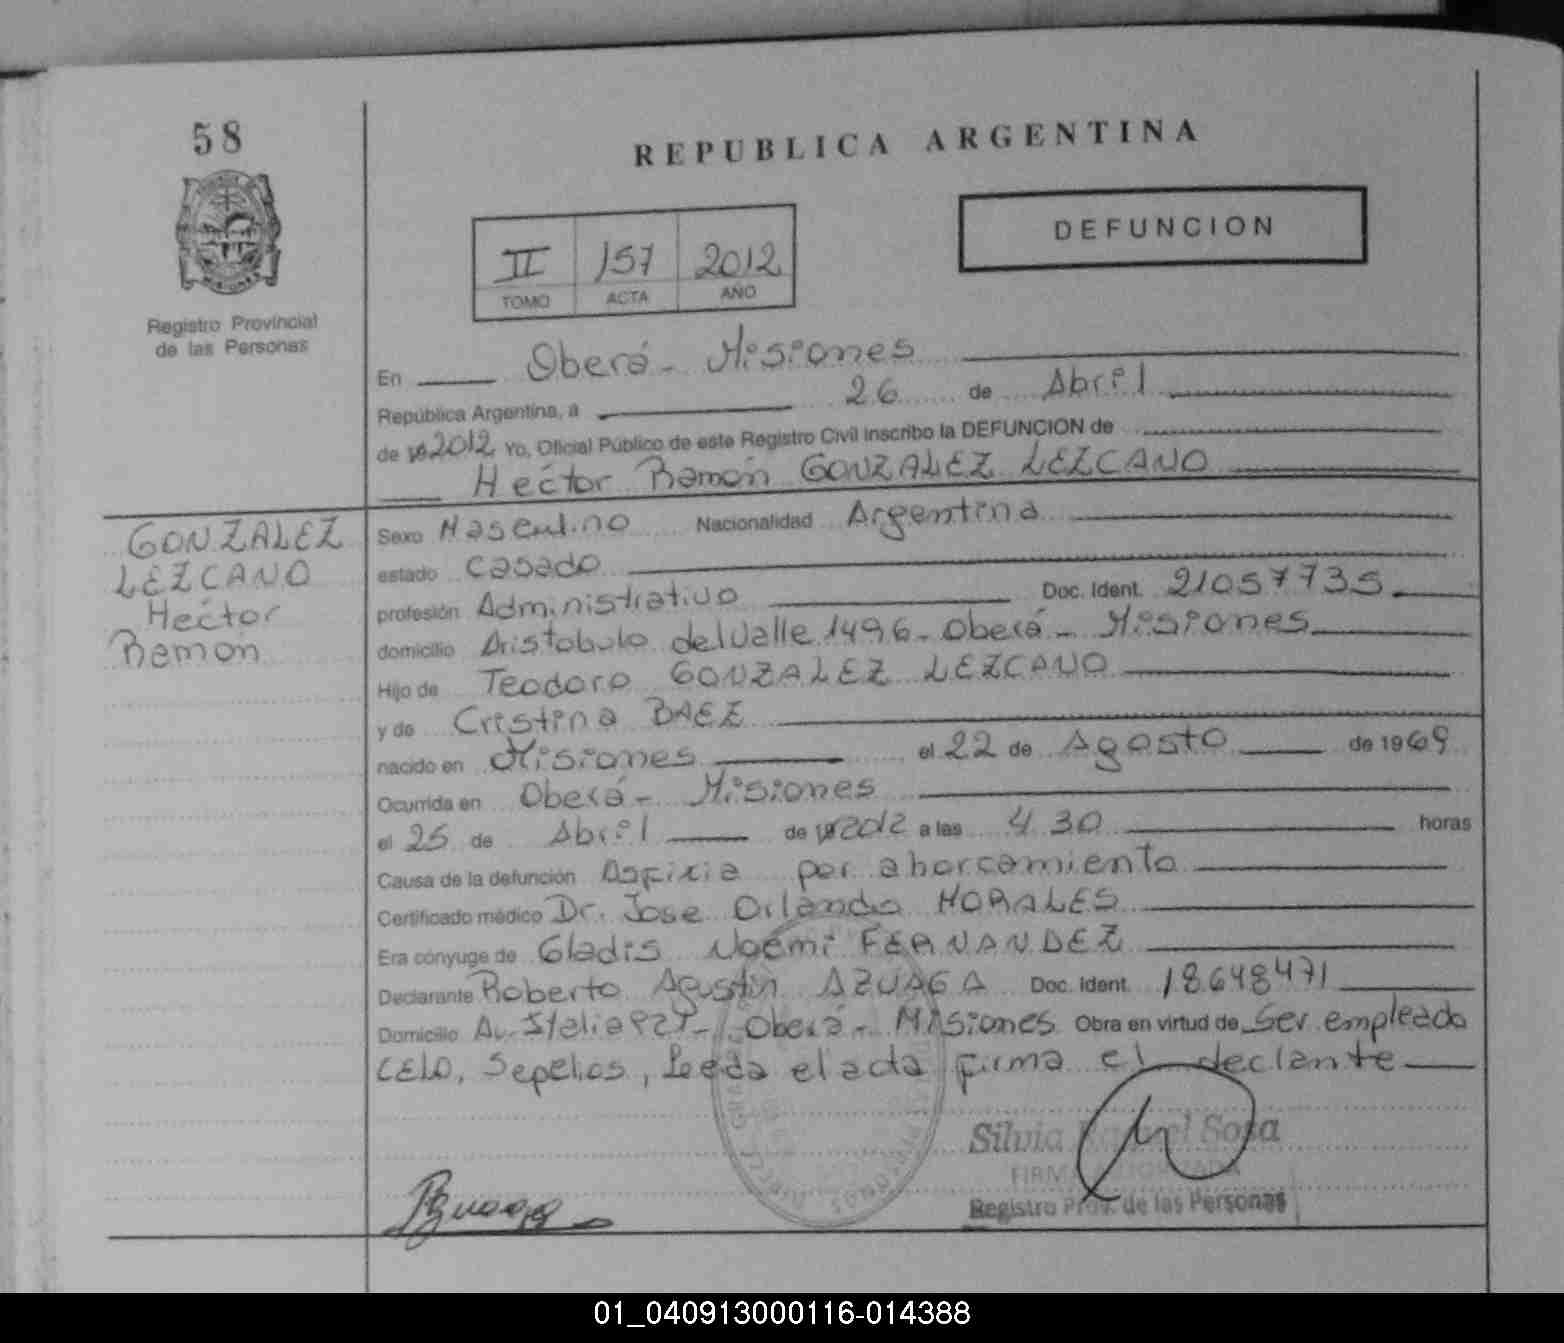 58
REPUBLICA ARGENTINA
Registro Provincial
de las Personas
II 157 2012
TOMO ACTA AÑO
DEFUNCION
En Oberá - Misiones
República Argentina, a 26 de Abril
de 2012 Yo, Oficial Público de este Registro Civil inscribo la DEFUNCION de
Héctor Ramón GONZALEZ LEZCANO
GONZALEZ
LEZCANO
Héctor
Ramón
Sexo Masculino Nacionalidad Argentina
estado casado
profesión Administrativo Doc. Ident. 21057735
domicilio Aristobulo del Valle 1496 - Oberá - Misiones
Hijo de Teodoro GONZALEZ LEZCANO
y de Cristina BAEZ
nacido en Misiones el 22 de Agosto de 1969
Ocurrida en Oberá - Misiones
el 25 de Abril de 2012 a las 4 30 horas
Causa de la defunción Asfixia por ahorcamiento
Certificado médico Dr. Jose Orlando MORALES
Era cónyuge de Gladis Noemi FERNANDEZ
Declarante Roberto Agustín AZUAGA Doc. Ident. 18648471
Domicilio Av. Italia - Oberá - Misiones Obra en virtud de Ser empleado
CELO, Sepelios, Leeda el acta firma el declante
Silvia Sosa
FIRMA AUTORIZADA
Registro Prov. de las Personas
01_040913000116-014388